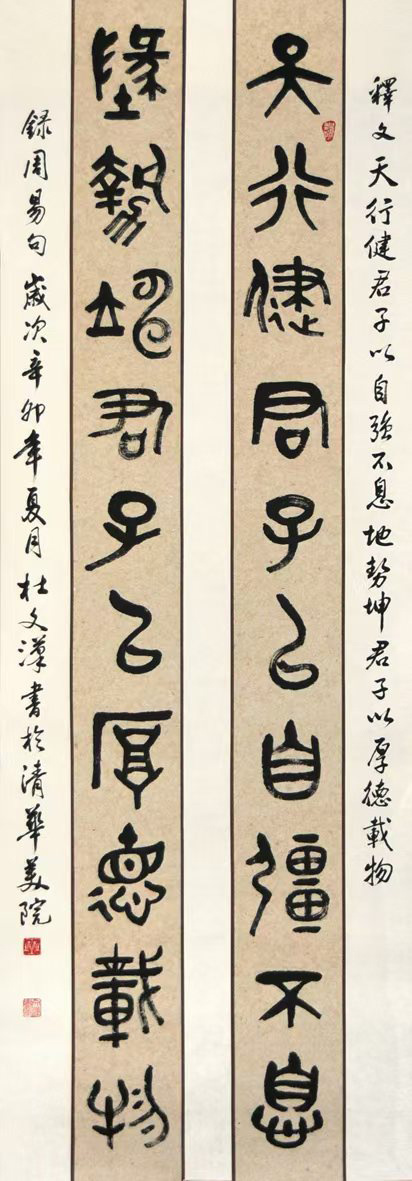 釋文天行健君子以自強不息地勢坤君子以厚德載物
天行健君子以自彊不息
墬勢坤君子以厚德載物
録周易句歲次辛卯年夏月杜文漢書於清華美院